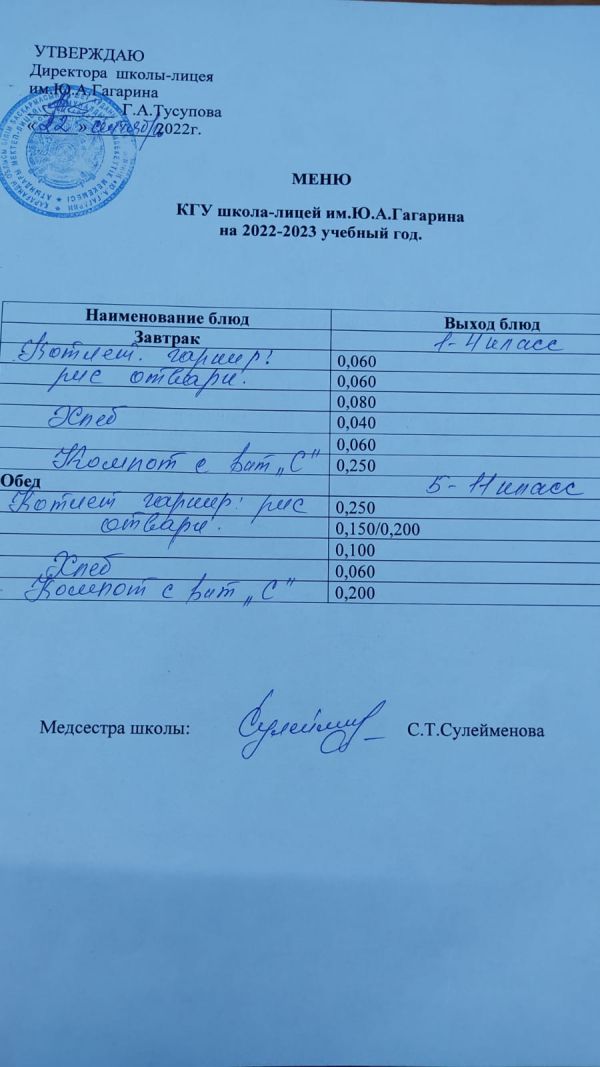 УТВЕРЖДАЮ
Директора школы-лицея
им.Ю.А.Гагарина
Г.А.Тусупова
«22» сентября 2022г.
МЕНЮ
КГУ школа-лицей им.Ю.А.Гагарина
на 2022-2023 учебный год.
Наименование блюд Выход блюд
Завтрак 1-4 класс
Котлет. гарнир: 0,060
рис отварн. 0,060
0,080
Хлеб 0,040
0,060
Компот с вит „С" 0,250
Обед 5-11 класс
Котлет гарнир: рис 0,250
отварн. 0,150/0,200
0,100
Хлеб 0,060
Компот с вит „С" 0,200
Медсестра школы: С.Т.Сулейменова